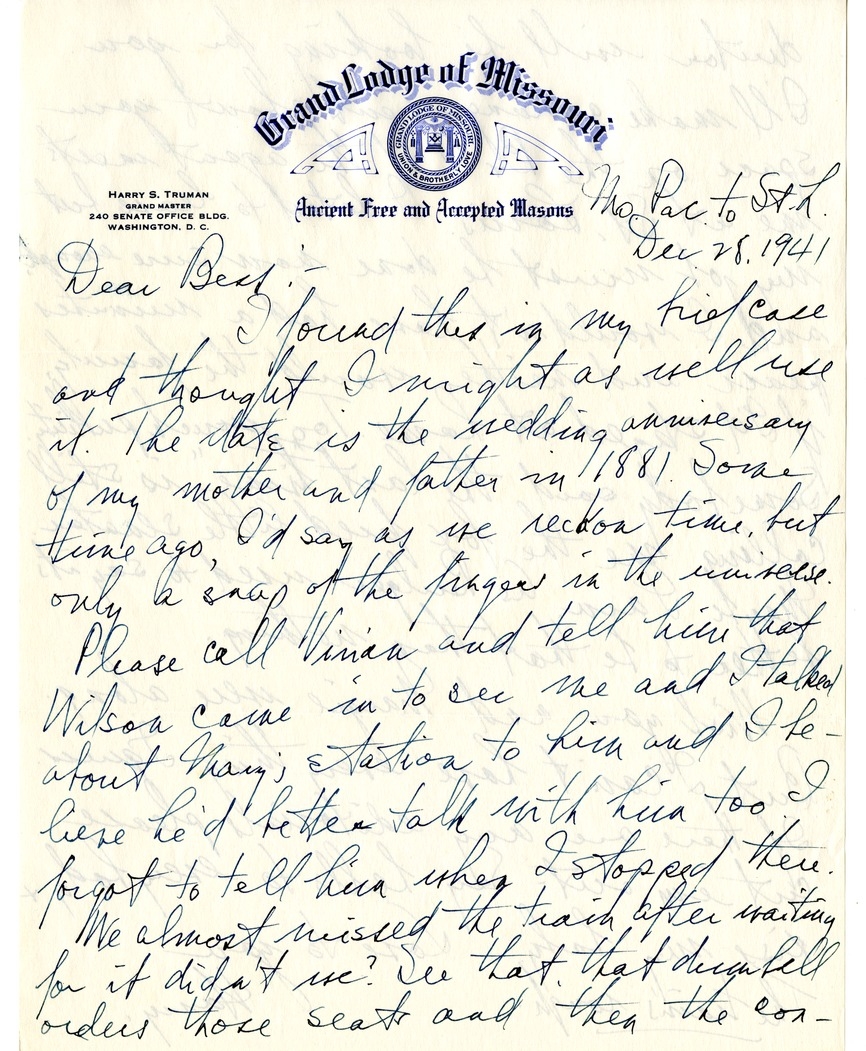 Grand Lodge of Missouri
GRAND LODGE OF MISSOURI
UNION & BROTHERLY LOVE
Ancient Free and Accepted Masons
HARRY S. TRUMAN
GRAND MASTER
240 SENATE OFFICE BLDG.
WASHINGTON, D. C.
Mo. Pac. to St. L.
Dec 28, 1941
Dear Bess:-
I found this in my brief case
and thought I might as well use
it. The date is the wedding anniversary
of my mother and father in 1881. Some
time ago, I'd say as we reckon time, but
only a snap of the fingers in the universe.
Please call Vivian and tell him that
Wilson came in to see me and I talked
about Mary's station to him and I be-
lieve he'd better talk with him too. I
forgot to tell him when I stopped there.
We almost missed the train after waiting
for it didn't we? See that, that dumbell
orders those seats and then the con-